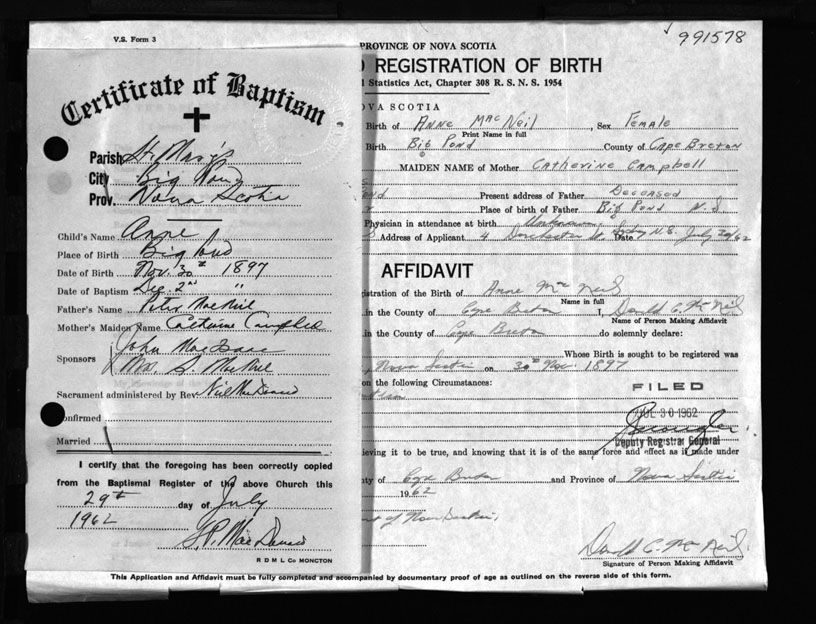 V.S. Form 3
991578
PROVINCE OF NOVA SCOTIA
REGISTRATION OF BIRTH
Statistics Act, Chapter 308 R. S. N. S. 1954
OVA SCOTIA
Birth of Anne MacNeil, Sex Female
Print Name in full
Birth Big Pond County of Cape Breton
MAIDEN NAME of Mother Catherine Campbell
Present address of Father Deceased
Place of birth of Father Big Pond N.S.
Physician in attendance at birth Unknown
Address of Applicant 4 Dorchester Date July 20/62
AFFIDAVIT
istration of the Birth of Anne Mac Neil
Name in full
in the County of Cape Breton I, Donald C. McNeil
Name of Person Making Affidavit
in the County of Cape Breton do solemnly declare:
Whose Birth is sought to be registered was
Nova Scotia on 30th Nov. 1897
on the following Circumstances:
FILED
JUL 30 1962
Deputy Registrar General
ieving it to be true, and knowing that it is of the same force and effect as if made under
ty of Cape Breton and Province of Nova Scotia
1962
Donald C. McNeil
Signature of Person Making Affidavit
Certificate of Baptism
Parish St. Mary's
City Big Pond
Prov. Nova Scotia
Child's Name Anne
Place of Birth Big Pond
Date of Birth Nov. 30th 1897
Date of Baptism Dec. 2nd "
Father's Name Peter MacNeil
Mother's Maiden Name Catherine Campbell
Sponsors John MacIsaac
Mrs. S. MacNeil
Sacrament administered by Rev. Neil
Confirmed
Married
I certify that the foregoing has been correctly copied
from the Baptismal Register of the above Church this
29th day of July
1962
R D M L Co MONCTON
This Application and Affidavit must be fully completed and accompanied by documentary proof of age as outlined on the reverse side of this form.